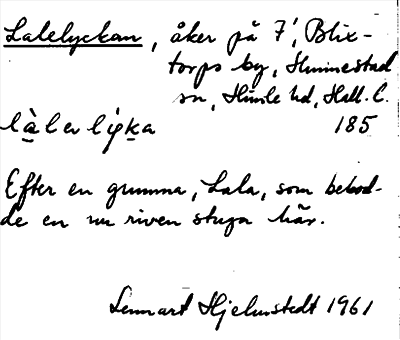 Lalelyckan, åker på 7¹, Blix-
torps by, Hunnestad
sn, Himle hd, Hall. l.
185
Efter en gumma, Lala, som bebod-
de en nu riven stuga här.
Lennart Hjelmstedt 1961